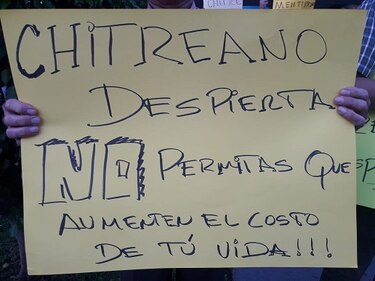 CHITRE
MENTIRA
CHITREANO
DESPIERTA
NO PERMITAS QUE
AUMENTEN EL COSTO
DE TÚ VIDA!!!